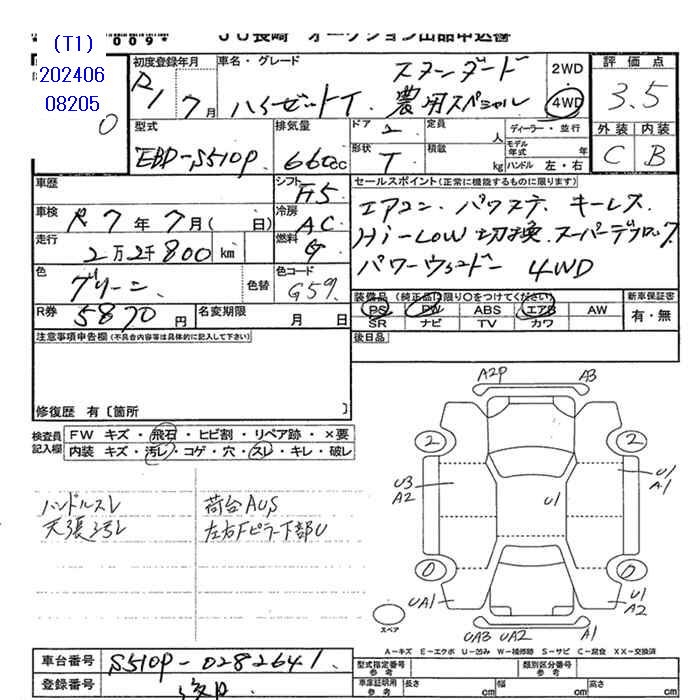 (T1)
202406
08205
0
009*
JU長崎 オークション出品申込書
初度登録年月
R1 7月
車名・グレード
スタンダード
ハイゼットT. 農用スペシャル
2WD
4WD
評価点
3.5
型式
EBD-S510P
排気量
660cc
ドア
2
定員
人
ディーラー・並行
形状
T
積載
kg
モデル年式
年式
ハンドル 左・右
外装 内装
C B
車歴
シフト
F5
セールスポイント(正常に機能するものに限ります)
エアコン. パワステ. キーレス.
Hi-LOW 切換. スーパーデフロック
パワーウィンドー 4WD
車検
R7年7月( 日)
冷房
AC
走行
2万2千800km
燃料
G
色
グリーン
色替
色コード
G59
R券
5870円
名変期限
月 日
装備品 (純正品に限り○をつけてください)
PS PW ABS エアB AW
SR ナビ TV カワ
新車保証書
有・無
注意事項申告欄(不具合内容等は具体的に記入して下さい)
後日品
修復歴 有〔箇所 〕
検査員記入欄
FW キズ・飛石・ヒビ割・リペア跡・×要
内装 キズ・汚レ・コゲ・穴・スレ・キレ・破レ
ハンドルスレ
天張汚レ
荷台AUS
左右Fピラー下部U
A2P A3
2 2
U3
A2
U1
U1
A1
0 0
UA1
U1
A2
UA3 UA2 A1
スペア
A-キズ E-エクボ U-凹み W-補修跡 S-サビ C-腐食 XX-交換済
車台番号
S510P-0282641
登録番号
型式指定番号
参考
類別区分番号
参考
車庫証明用
参考
長さ cm
幅 cm
高さ cm